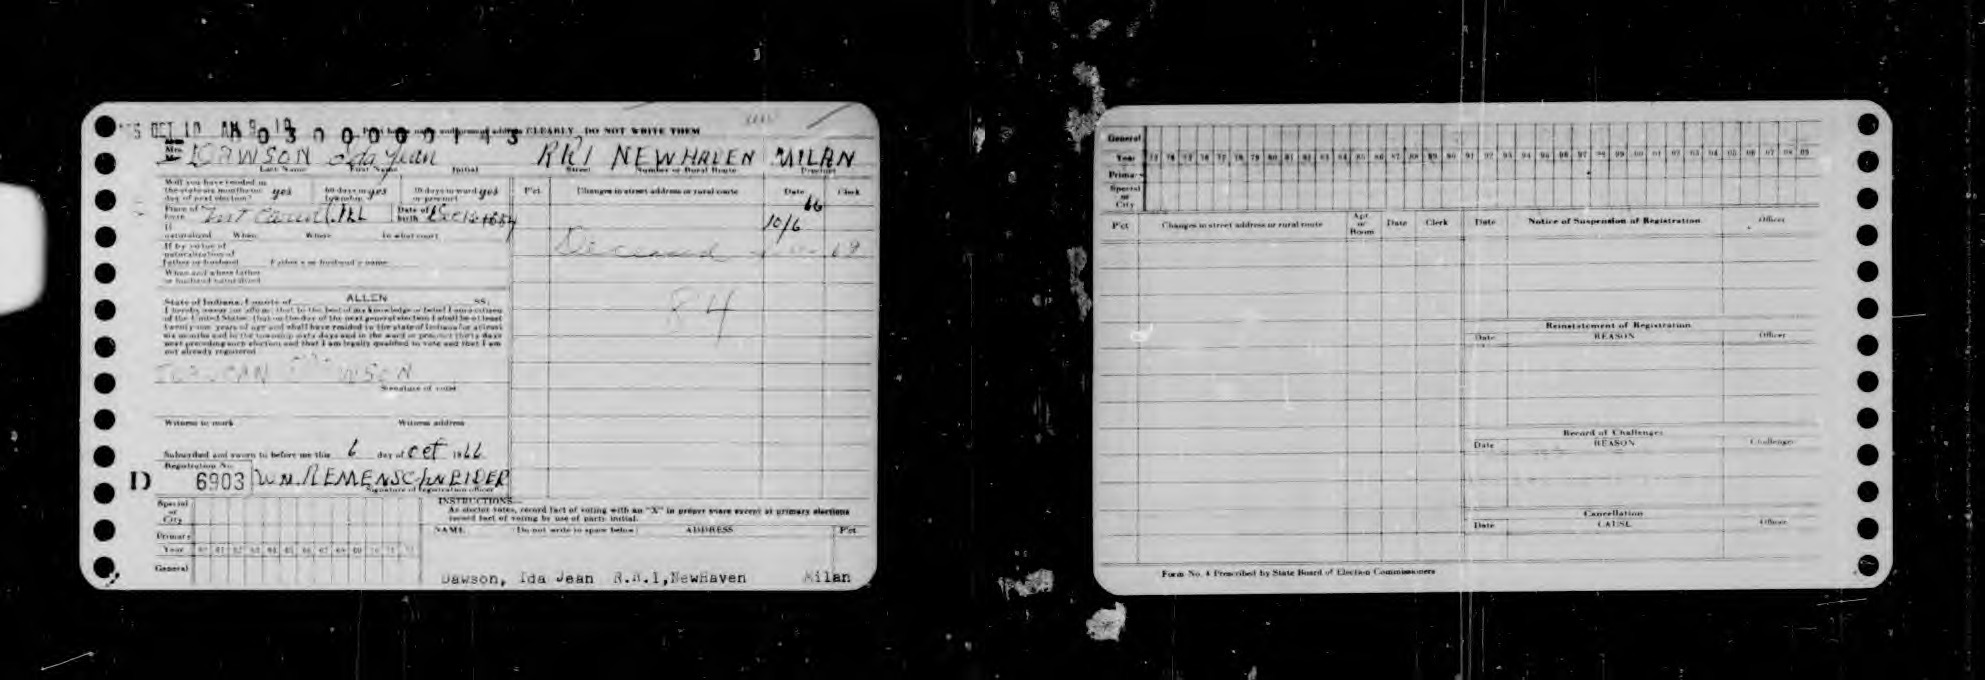 OCT 10 AM 9 19 0300000143
name and present address CLEARLY DO NOT WRITE THEM
Mrs. DAWSON Ida Jean RR1 NEW HAVEN MILAN
Last Name First Name Initial Street Number or Rural Route Precinct
Will you have resided in the state six months on day of next election? yes 60 days in township yes 30 days in ward or precinct yes
Pct. Changes in street address or rural route Date Clerk
Place of birth ILL Date of birth
66
10/6
If naturalized When Where In what court
Deceased 69
If by virtue of naturalization of Father or husband Father's or husband's name
When and where father or husband naturalized
84
State of Indiana, County of ALLEN SS:
I hereby swear (or affirm) that to the best of my knowledge or belief I am a citizen
of the United States, that on the day of the next general election I shall be at least
twenty-one years of age and shall have resided in the state of Indiana for at least
six months and in the township sixty days and in the ward or precinct thirty days
next preceding such election and that I am legally qualified to vote and that I am
not already registered
IDA JEAN DAWSON
Signature of voter
Witness to mark Witness address
Subscribed and sworn to before me this 6 day of Oct 1966
Registration No.
D 6903 WM. REMENSCHNEIDER
Signature of registration officer
INSTRUCTIONS—
As elector votes, record fact of voting with an "X" in proper space except at primary elections
record fact of voting by use of party initial.
Special or City
Primary
Year 60 61 62 63 64 65 66 67 68 69 70 71 72
General
NAME (Do not write in space below) ADDRESS Pct
Dawson, Ida Jean R.R.1,NewHaven Milan
General
Year 73 74 75 76 77 78 79 80 81 82 83 84 85 86 87 88 89 90 91 92 93 94 95 96 97 98 99 00 01 02 03 04 05 06 07 08 09
Primary
Special or City
Pct Changes in street address or rural route Apt. or Room Date Clerk Date Notice of Suspension of Registration Officer
Reinstatement of Registration
Date REASON Officer
Record of Challenges
Date REASON Challenger
Cancellation
Date CAUSE Officer
Form No. 4 Prescribed by State Board of Election Commissioners